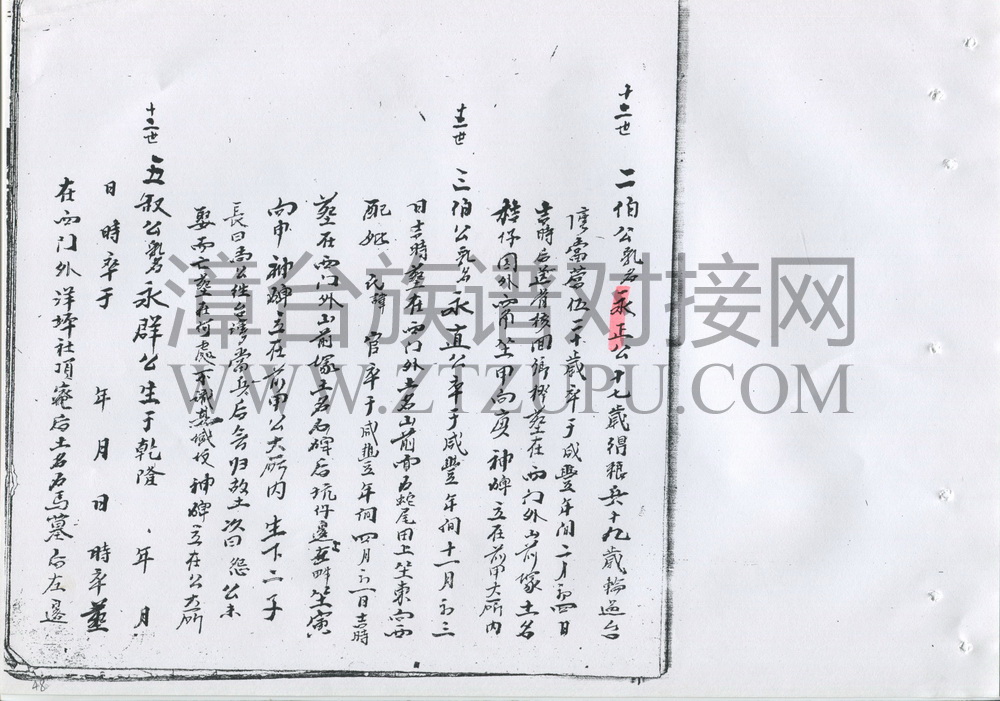 十二世 二伯公乳名永正公十七歲得粮兵十九歲輪過台
當營伍二十歲卒于咸豐年间二月初四日
吉時后送骨核回葬在西门外山前塚土名
仔园外坐甲向庚神牌立在前甲大所内
十二世 三伯公乳名永直公卒于咸豐年间十一月初三
日吉時葬在西门外土名山前蛇尾田上坐東向西
配妣 氏諱 官卒于咸豐年间四月初一日吉時
葬在西门外山前塚土名碑后坑仔邊坐寅
向申神牌立在前甲公大所内生下二子
長曰公往台湾當兵后無归故土次曰怨公未
娶而亡葬在何處不識其城神牌立在公大所
十二世 五叔公乳名永群公生于乾隆 年 月
日 時卒于 年 月 日 時卒葬
在西门外洋坪社頂庵后土名石馬墓后左邊
漳台族谱对接网
WWW.ZTZUPU.COM
48